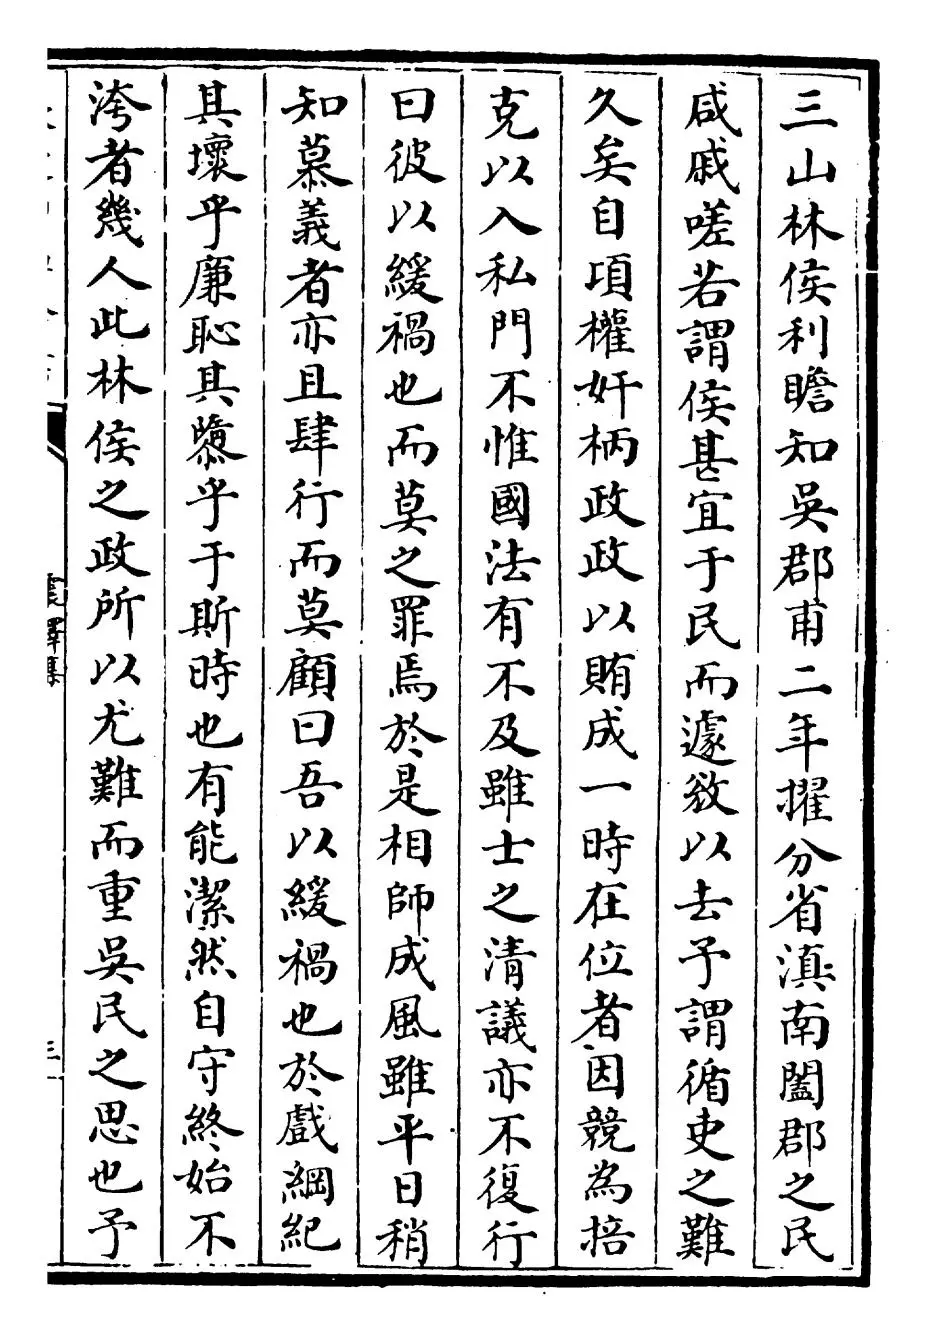 三山林侯利瞻知吳郡甫二年擢分省滇南闔郡之民
咸戚嗟若謂侯甚宜于民而遽敚以去予謂循吏之難
久矣自頃權奸柄政政以賄成一時在位者因競為掊
克以入私門不惟國法有不及雖士之清議亦不復行
曰彼以緩禍也而莫之罪焉於是相師成風雖平日稍
知慕義者亦且肆行而莫顧曰吾以緩禍也於戲綱紀
其壞乎廉恥其隳乎于斯時也有能潔然自守終始不
洿者幾人此林侯之政所以尤難而重吳民之思也予
震澤集
三